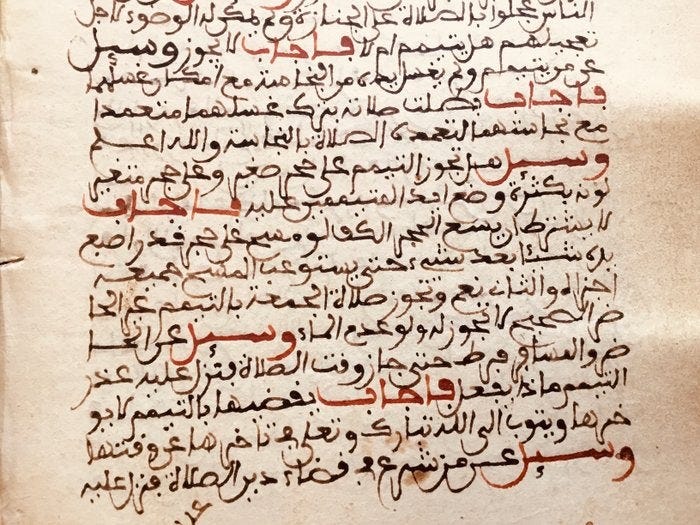 الناس عجلوا بالصلاة على الجنازة ولم يمكن له الوضوء لاجل
تعجيلهم هل يتيمم ام لا فاجاب لا يجوز وسيل
عن من يتيمم ولم يغسل يديه من النجاسة مع امكان غسلها
فاجاب بطلت صلاته بترك غسلهما متعمدا
مع نجاستهما لتعمده الصلاة بالنجاسة والله اعلم
وسيل هل يجوز التيمم على حجر صغير وعلى حجر متغير
لونه بكثرة وضع ايدي المتيممين عليه فاجاب
لا يشترط ان يسع الحجر الكف الو مسح على حجر قدر اصبع
يده شيئا بعد شيء حتى يستوعب المسح جميعه
اجزاه والثاني نعم وتجوز صلاة الجمعة بالتيمم على الحا
ضر الصحيح لا يجوز له ولو عدم الماء وسيل عن الحا
ضر والمسافر فرط حتى جاز وقت الصلاة فنزل عليه عذر
التيمم ماذا يفعل فاجاب يقضها بالتيمم لا يو
خرها ويتوب الى الله تبارك وتعلى في تاخرها عن وقتها
وسيل عن من شرع في قضاء دين الصلاة فنزل عليه